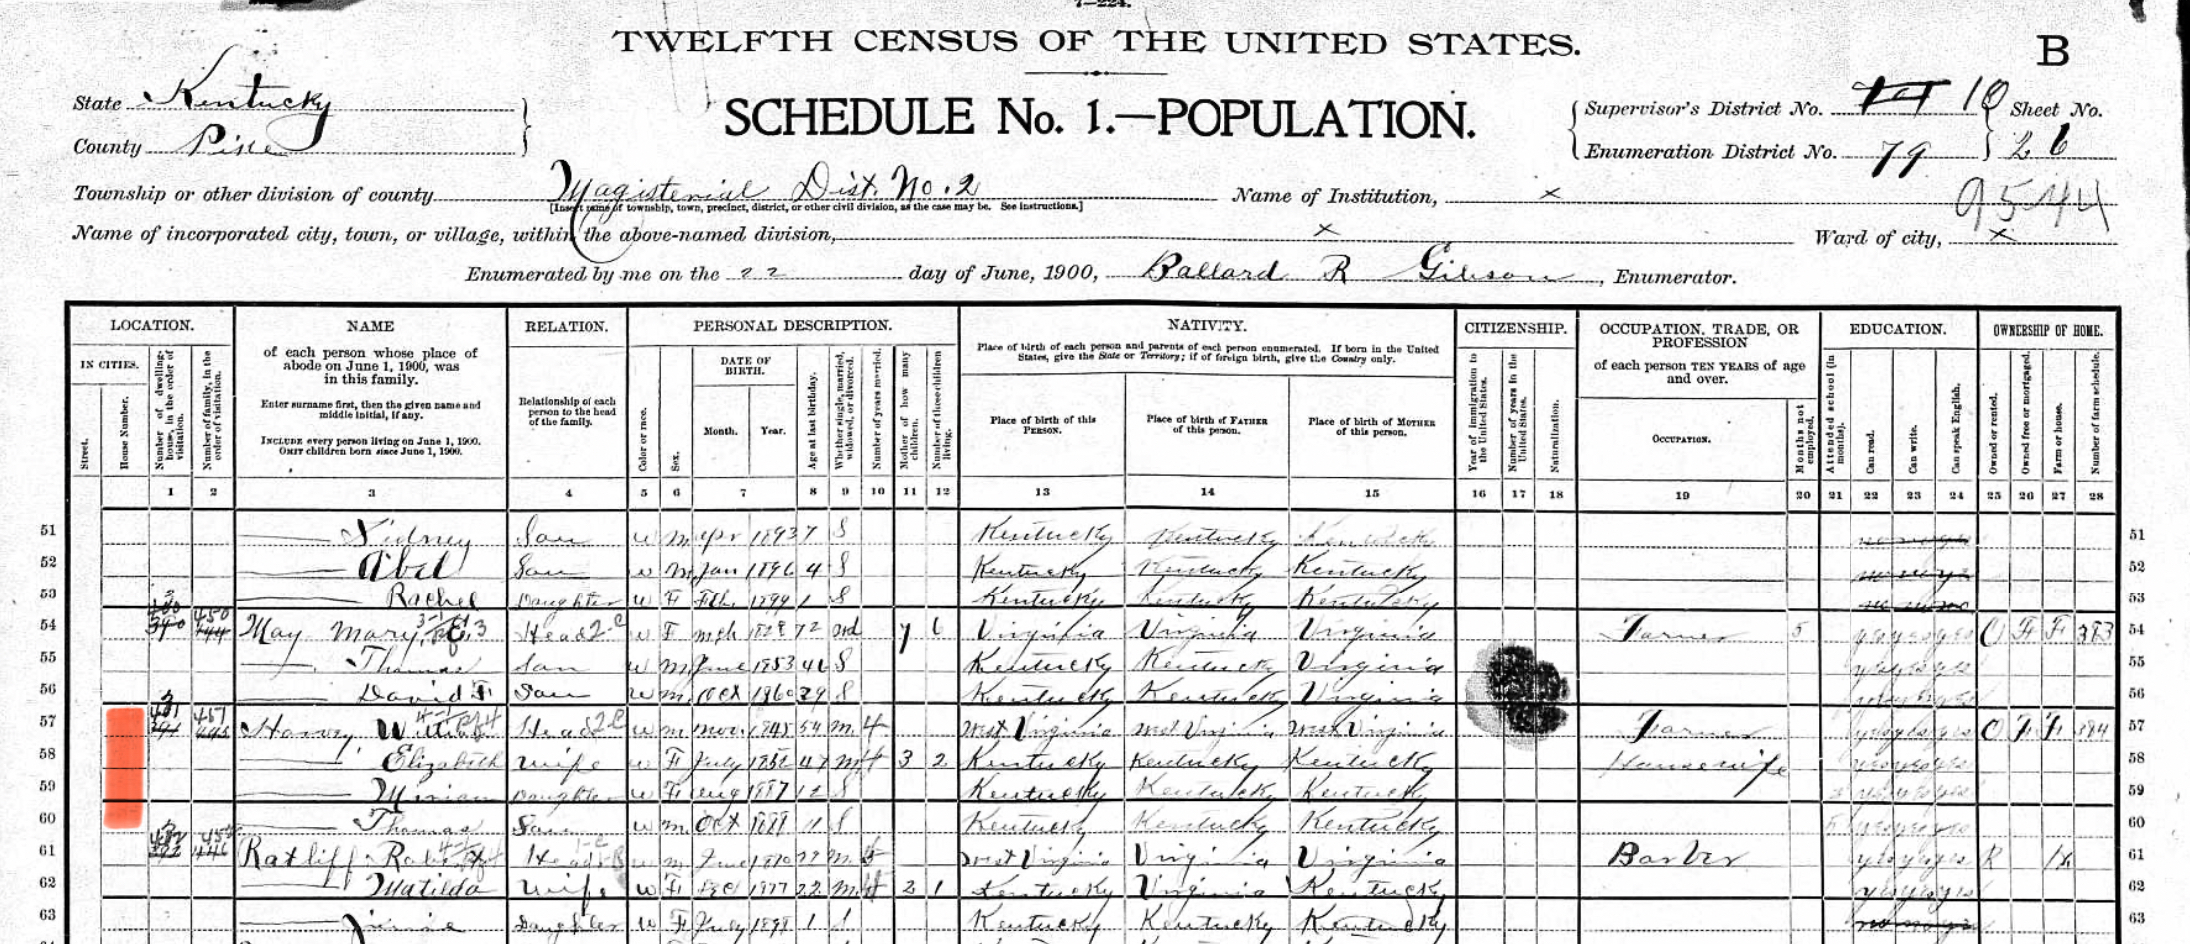 7—224.
TWELFTH CENSUS OF THE UNITED STATES.
B
State Kentucky
County Pike
SCHEDULE No. 1.—POPULATION.
Supervisor's District No. 10 Sheet No.
Enumeration District No. 79 26
9544
Township or other division of county Magisterial Dist. No. 2 Name of Institution, x
[Insert name of township, town, precinct, district, or other civil division, as the case may be. See instructions.]
Name of incorporated city, town, or village, within the above-named division, x Ward of city, x
Enumerated by me on the 22 day of June, 1900, Ballard R Gibson, Enumerator.
LOCATION. NAME RELATION. PERSONAL DESCRIPTION. NATIVITY. CITIZENSHIP. OCCUPATION, TRADE, OR PROFESSION EDUCATION. OWNERSHIP OF HOME.
IN CITIES.
Street.
House Number.
Number of dwelling-house, in the order of visitation.
Number of family, in the order of visitation.
of each person whose place of abode on June 1, 1900, was in this family.
Enter surname first, then the given name and middle initial, if any.
INCLUDE every person living on June 1, 1900.
OMIT children born since June 1, 1900.
Relationship of each person to the head of the family.
Color or race.
Sex.
DATE OF BIRTH.
Month. Year.
Age at last birthday.
Whether single, married, widowed, or divorced.
Number of years married.
Mother of how many children.
Number of these children living.
Place of birth of each person and parents of each person enumerated. If born in the United States, give the State or Territory; if of foreign birth, give the Country only.
Place of birth of this PERSON.
Place of birth of FATHER of this person.
Place of birth of MOTHER of this person.
Year of immigration to the United States.
Number of years in the United States.
Naturalization.
of each person TEN YEARS of age and over.
OCCUPATION.
Months not employed.
Attended school (in months).
Can read.
Can write.
Can speak English.
Owned or rented.
Owned free or mortgaged.
Farm or house.
Number of farm schedule.
1 2 3 4 5 6 7 8 9 10 11 12 13 14 15 16 17 18 19 20 21 22 23 24 25 26 27 28
51 Sidney Son W M Apr 1893 7 S Kentucky Kentucky Kentucky 51
52 Abel Son W M Jan 1896 4 S Kentucky Kentucky Kentucky 52
53 Rachel Daughter W F Feb 1899 1 S Kentucky Kentucky Kentucky 53
54 450 May Mary Head W F Mch 1828 72 7 6 Virginia Virginia Virginia Farmer 5 yes yes yes O F F 383 54
55 Thomas Son W M June 1853 46 S Kentucky Kentucky Virginia yes yes yes 55
56 David F Son W M Oct 1860 39 S Kentucky Kentucky Virginia yes yes yes 56
57 451 Harvey, William Head W M Nov 1845 54 M 4 West Virginia West Virginia West Virginia Farmer yes yes yes O F F 384 57
58 Elizabeth Wife W F July 1852 47 M 4 3 2 Kentucky Kentucky Kentucky Housewife yes yes yes 58
59 Miriam Daughter W F Aug 1887 12 S Kentucky Kentucky Kentucky yes yes yes 59
60 Thomas Son W M Oct 1888 11 S Kentucky Kentucky Kentucky yes yes yes 60
61 452 Ratliff Robert Head W M June 1870 29 M 5 West Virginia Virginia Virginia Barber yes yes yes R H 61
62 Matilda Wife W F Dec 1877 22 M 2 1 Kentucky Virginia Kentucky yes yes yes 62
63 Daughter W F July 1898 1 S Kentucky Kentucky Kentucky 63